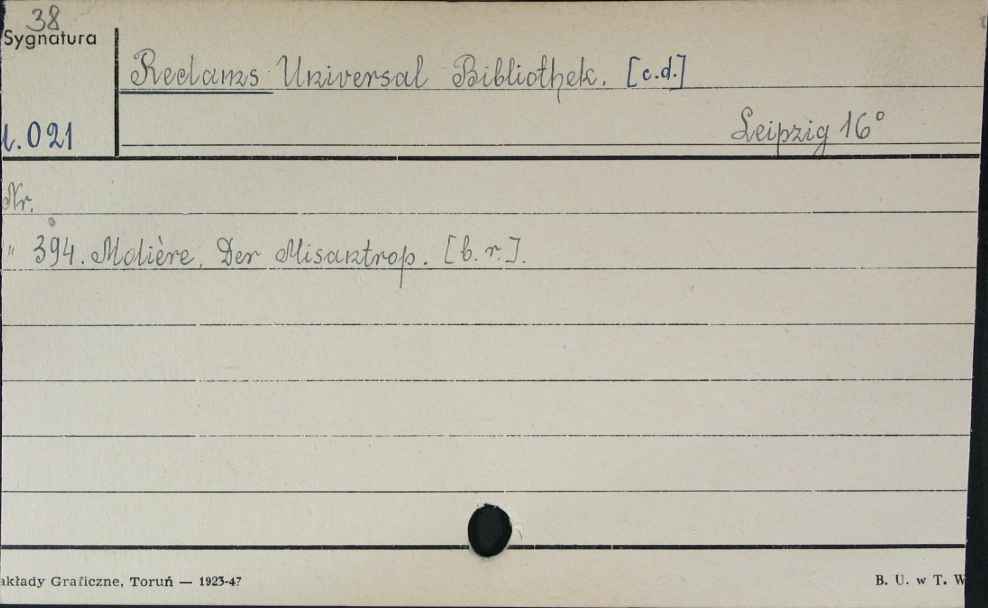 38
Sygnatura
Reclams Universal Bibliothek. [c.d.]
021
Leipzig 16°
Nr.
" 394. Molière. Der Misantrop. [b. r.].
akłady Graficzne, Toruń — 1923-47
B. U. w T. W